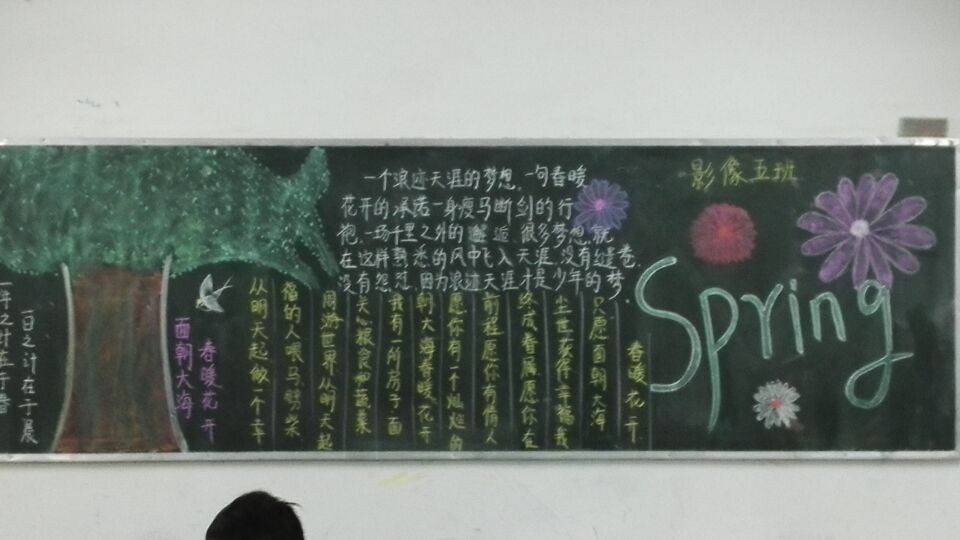 一年之计在于春
一日之计在于晨
面朝大海
春暖花开
一个浪迹天涯的梦想,一句春暖
花开的承诺一身瘦马断剑的行
袍、一场千里之外的邂逅、很多梦想、就
在这样熟悉的风中飞入天涯、没有
没有怨怼、因为浪迹天涯才是少年的梦.
从明天起做一个幸
福的人喂马劈柴
周游世界从明天起
关心粮食和蔬菜
我有一所房子面
朝大海春暖花开
愿你有一个灿烂的
前程愿你有情人
终成眷属愿你在
尘世获得幸福我
只愿面朝大海
春暖花开
影像五班
Spring